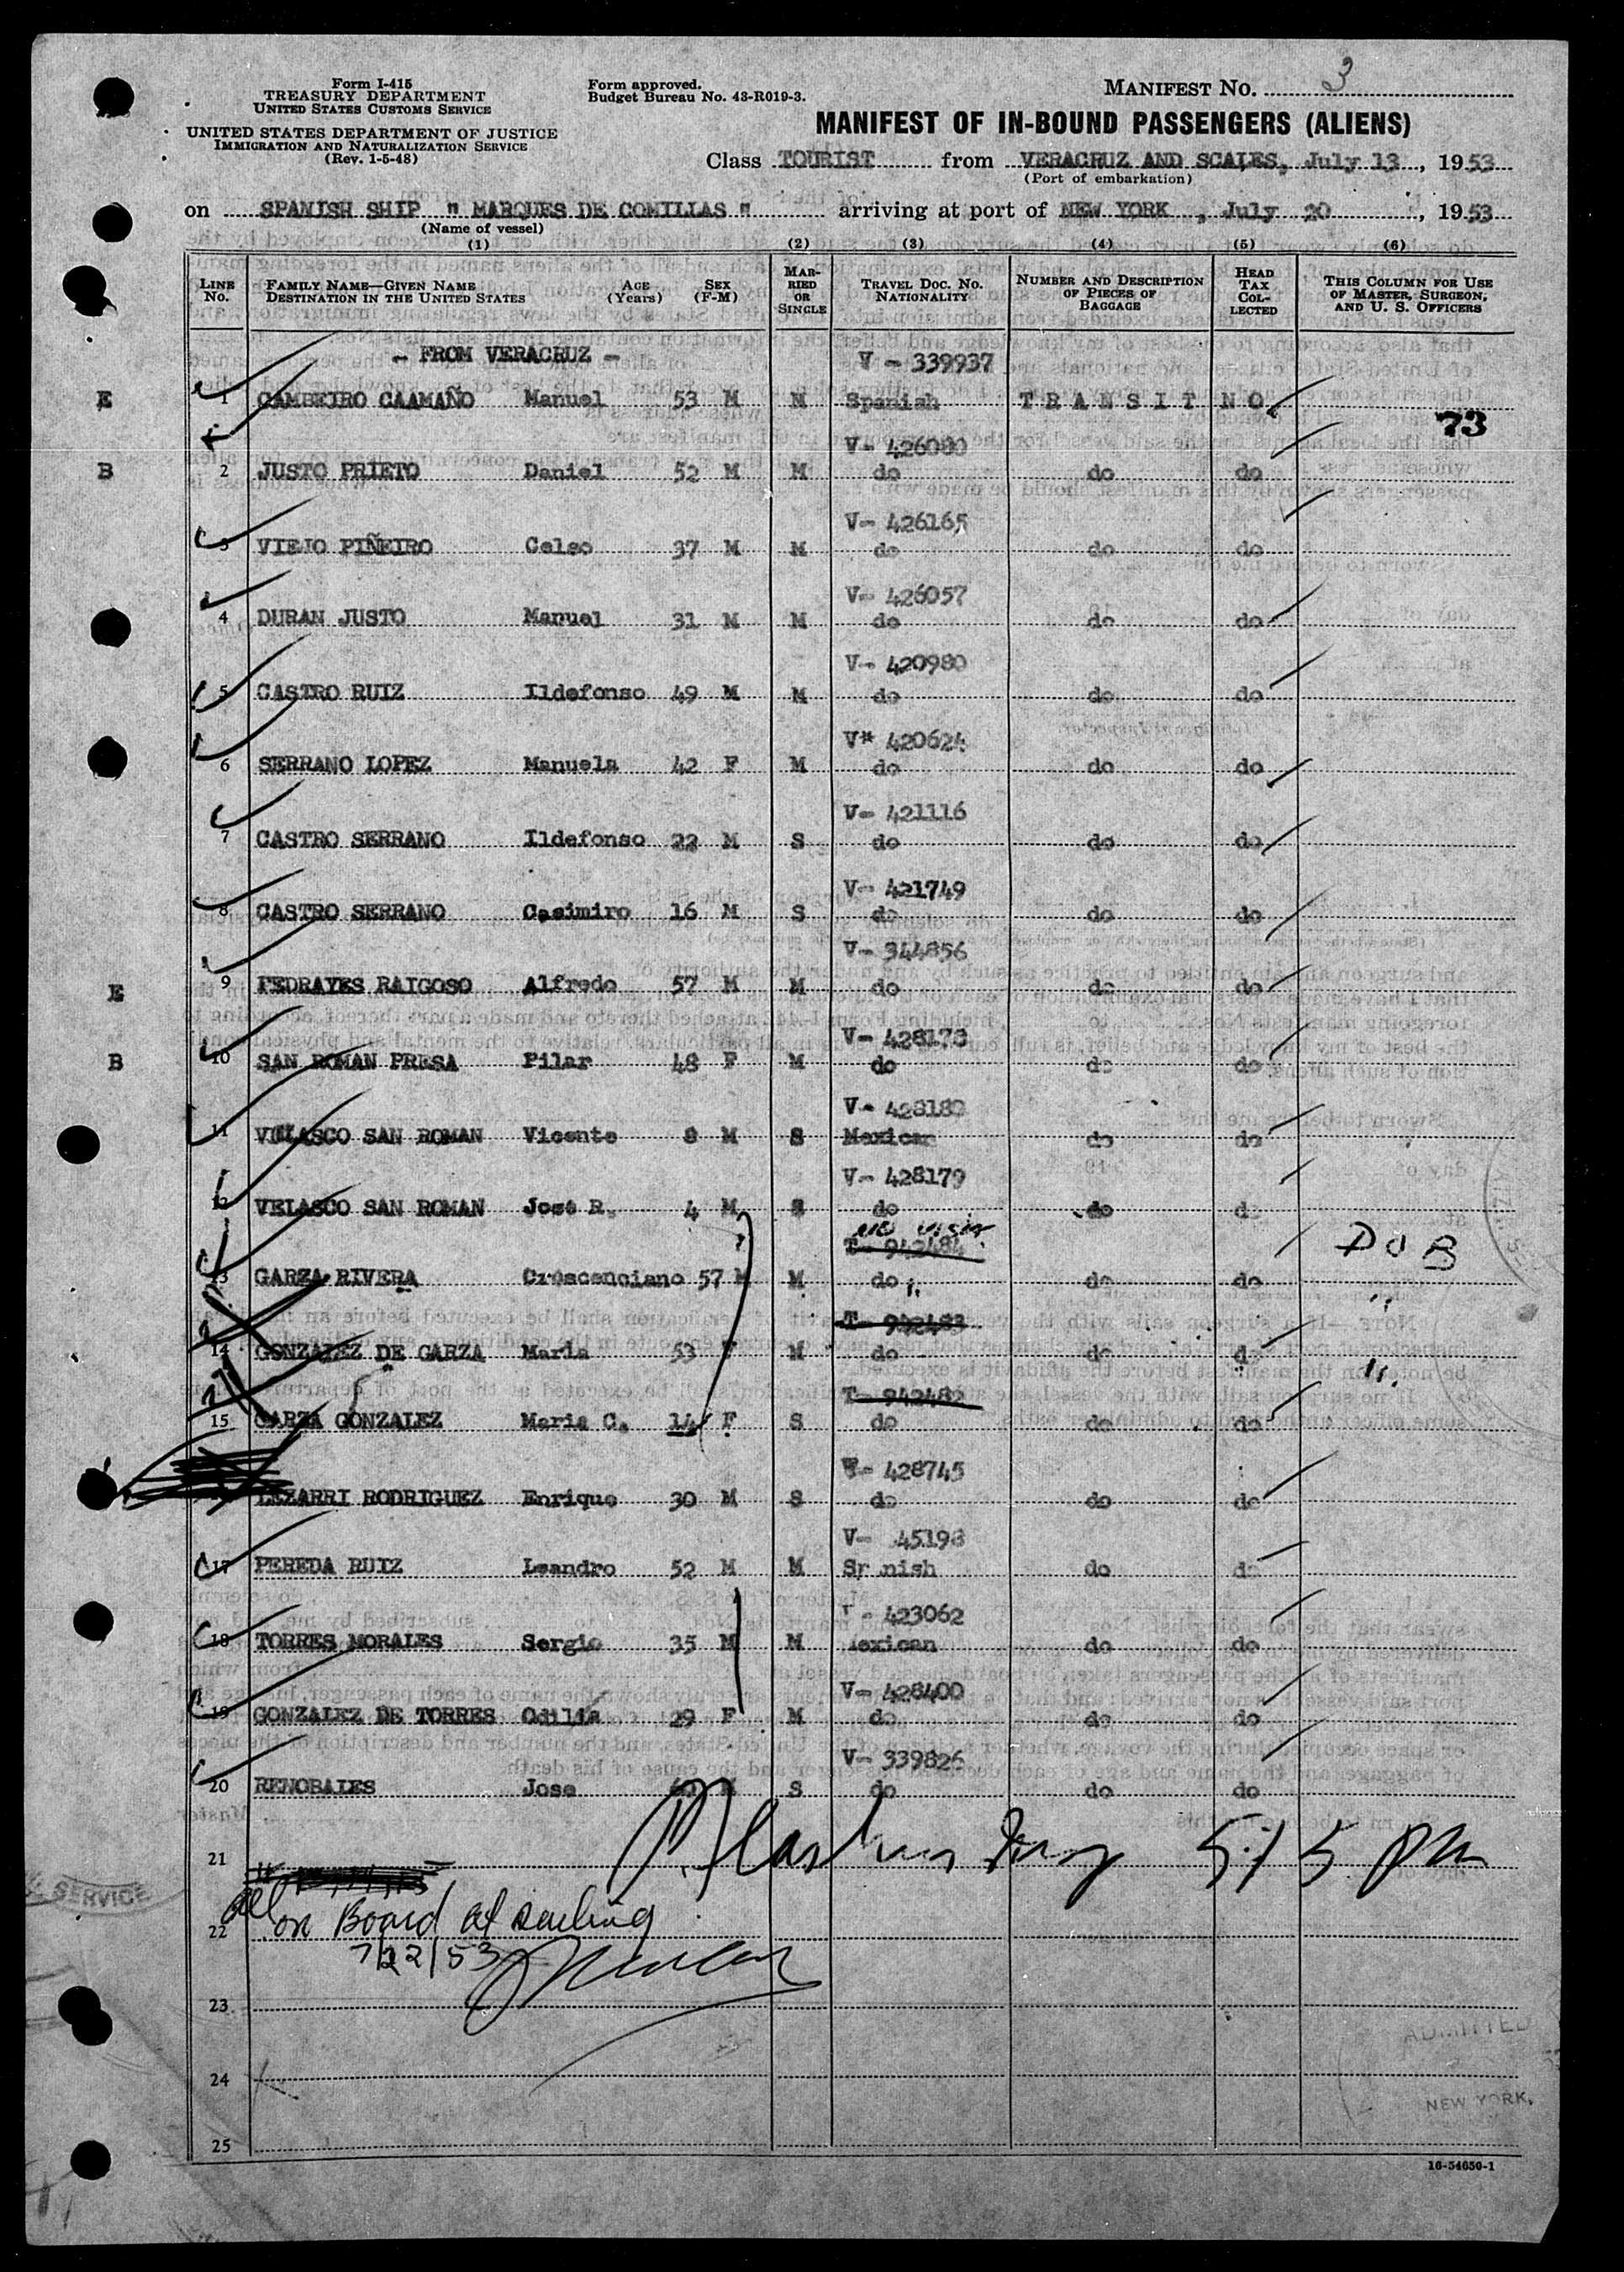 Form I-415
TREASURY DEPARTMENT
UNITED STATES CUSTOMS SERVICE
UNITED STATES DEPARTMENT OF JUSTICE
IMMIGRATION AND NATURALIZATION SERVICE
(Rev. 1-5-48)
Form approved.
Budget Bureau No. 43-R019-3.
MANIFEST NO. 3
MANIFEST OF IN-BOUND PASSENGERS (ALIENS)
Class TOURIST from VERACRUZ AND SCALES, July 13, 1953
(Port of embarkation)
on SPANISH SHIP "MARQUES DE COMILLAS" arriving at port of NEW YORK, July 20, 1953
(Name of vessel)
(1) (2) (3) (4) (5) (6)
LINE NO. FAMILY NAME—GIVEN NAME DESTINATION IN THE UNITED STATES AGE (Years) SEX (F-M) MARRIED OR SINGLE TRAVEL DOC. NO. NATIONALITY NUMBER AND DESCRIPTION OF PIECES OF BAGGAGE HEAD TAX COLLECTED THIS COLUMN FOR USE OF MASTER, SURGEON, AND U. S. OFFICERS
- FROM VERACRUZ - V - 339937
E 1 CAMBEIRO CAAMAÑO Manuel 53 M M Spanish TRANSIT NO.
73
V- 426080
B 2 JUSTO PRIETO Daniel 52 M M do do do
V- 426165
3 VIEJO PIÑEIRO Celso 37 M M do do do
V- 426057
4 DURAN JUSTO Manuel 31 M M do do do
V- 420980
5 CASTRO RUIZ Ildefonso 49 M M do do do
V* 420624
6 SERRANO LOPEZ Manuela 42 F M do do do
V- 421116
7 CASTRO SERRANO Ildefonso 22 M S do do do
V- 421749
8 CASTRO SERRANO Casimiro 16 M S do do do
V- 344856
E 9 PEDRAYES RAIGOSO Alfredo 57 M M do do do
V- 428178
B 10 SAN ROMAN PRESA Pilar 48 F M do do do
V- 428180
11 VELASCO SAN ROMAN Vicente 8 M S Mexican do do
V- 428179
12 VELASCO SAN ROMAN José R. 4 M S do do do
no visa
T- 942484 DOB
13 GARZA RIVERA Crescenciano 57 M M do do do
T- 942483 "
14 GONZALEZ DE GARZA Maria 53 F M do do do
T- 942482 "
15 GARZA GONZALEZ Maria C. 14 F S do do do
V- 428745
LEZARRI RODRIGUEZ Enrique 30 M S do do do
V- 45198
17 PEREDA RUIZ Leandro 52 M M Spanish do do
V - 423062
18 TORRES MORALES Sergio 35 M M Mexican do do
V- 428400
19 GONZALEZ DE TORRES Odilia 29 F M do do do
V- 339826
20 RENOBALES Jose M S do do do
21 5:15 PM
22 all on Board at sailing
7/22/53
23
24
25
ADMITTED
NEW YORK,
SERVICE
16-54650-1